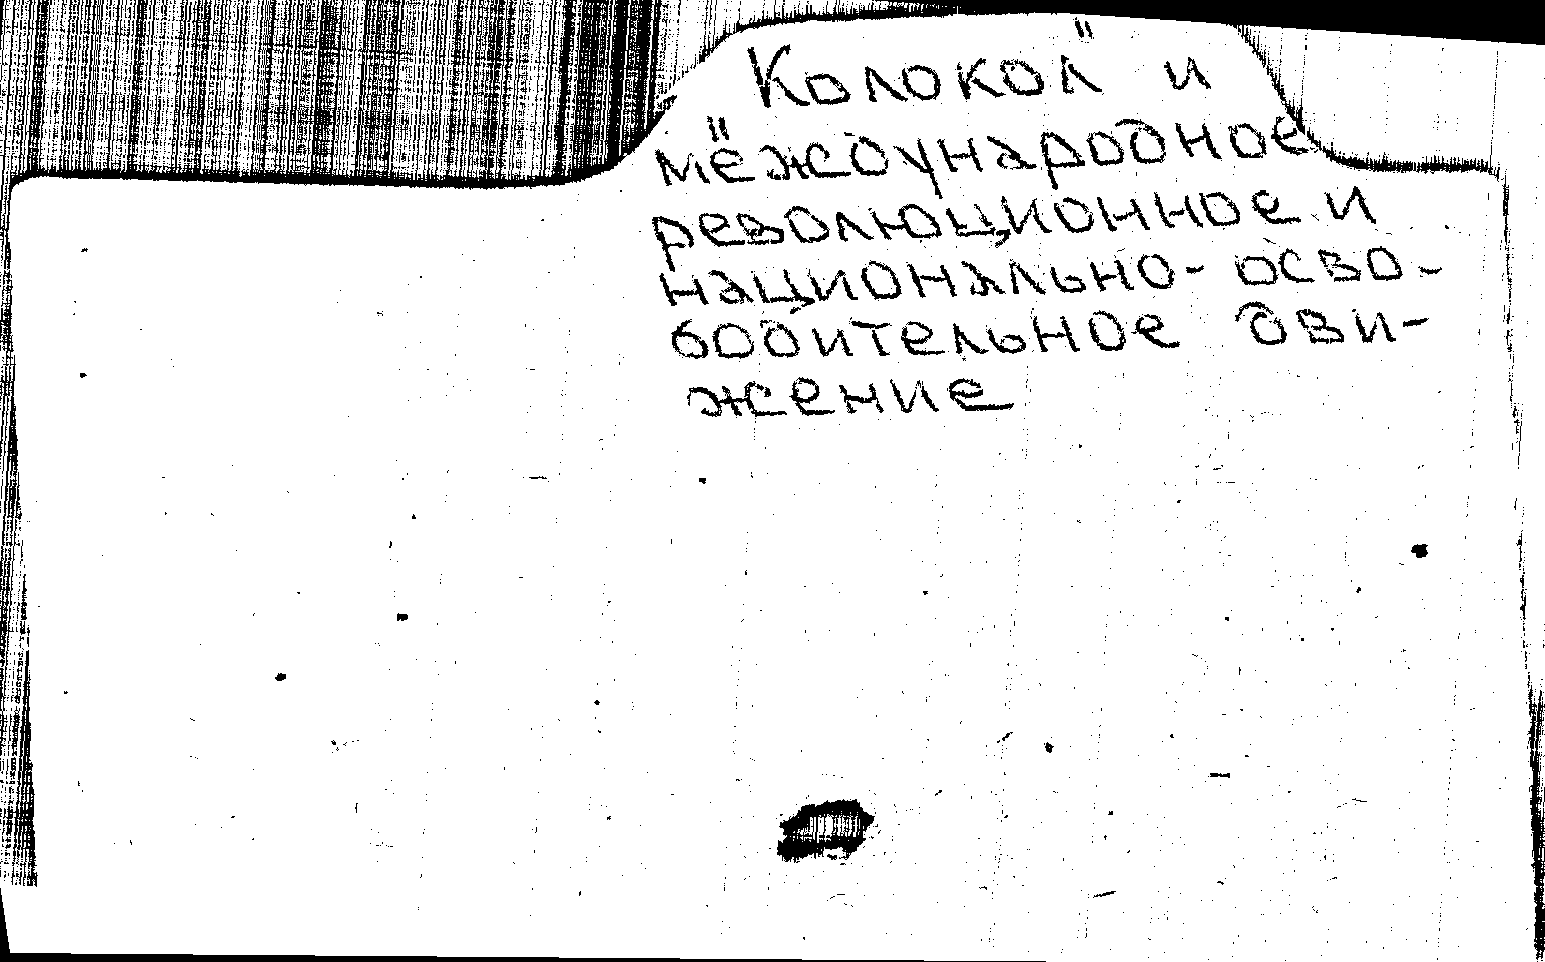 "Колокол" и
международное
революционное и
национально-осво-
бодительное дви-
жение